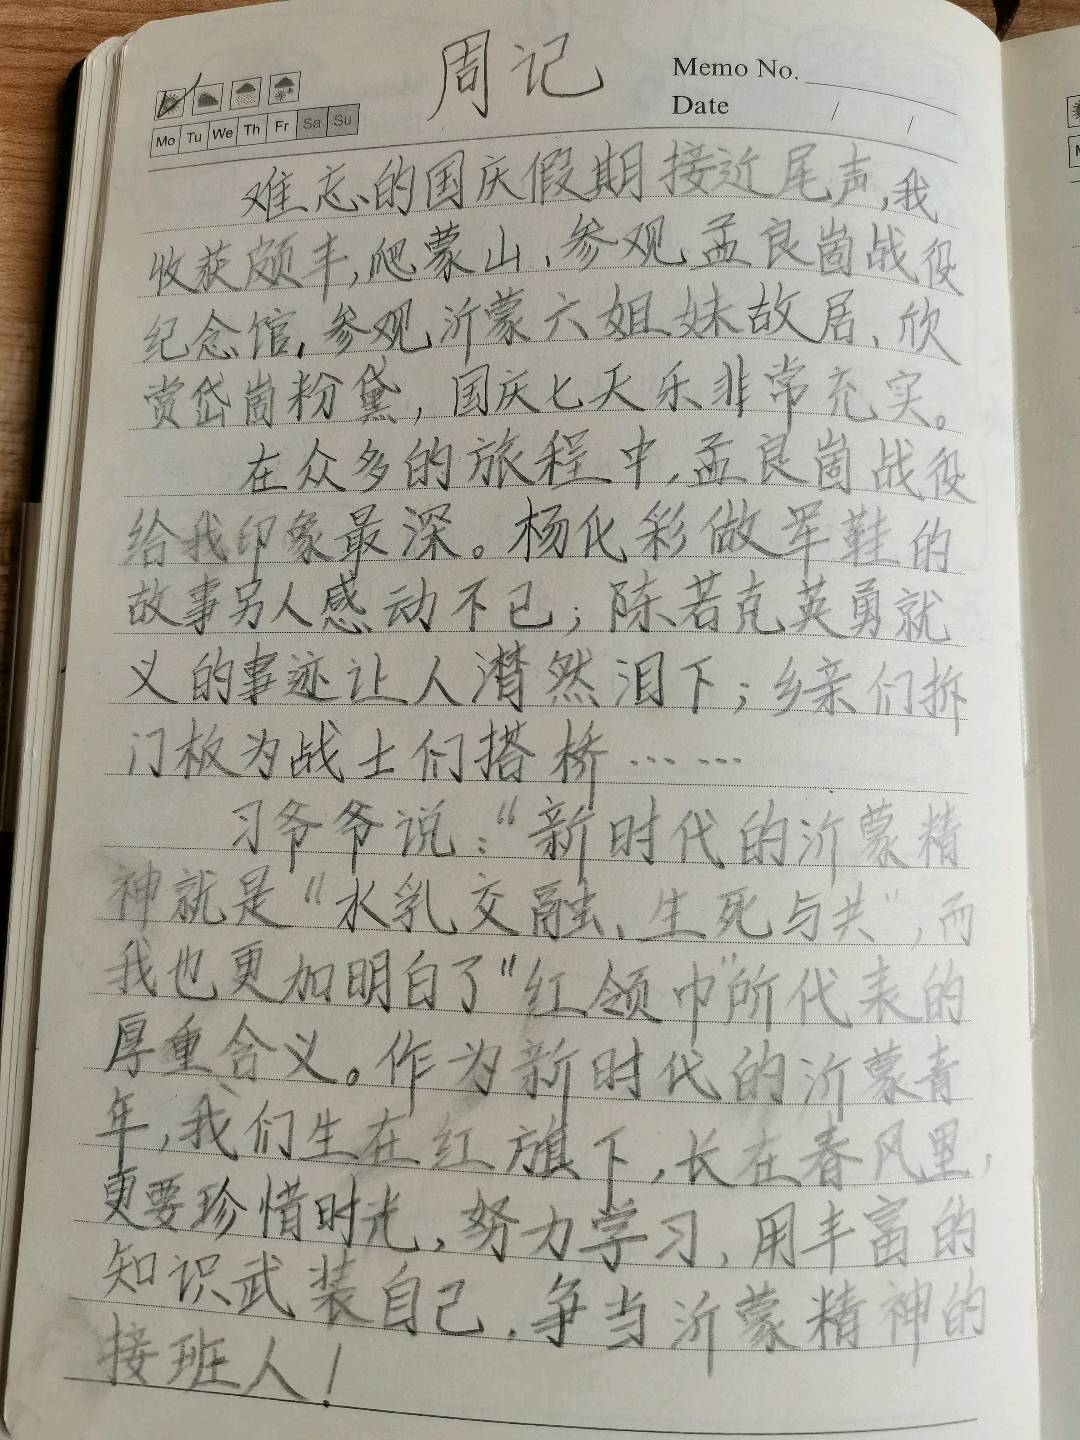 周记
Memo No.
Date / /
Mo Tu We Th Fr Sa Su
难忘的国庆假期接近尾声,我
收获颇丰,爬蒙山、参观孟良崮战役
纪念馆,参观沂蒙六姐妹故居、欣
赏岱崮粉黛,国庆七天乐非常充实。
在众多的旅程中,孟良崮战役
给我印象最深。杨化彩做军鞋的
故事另人感动不已;陈若克英勇就
义的事迹让人潸然泪下;乡亲们拆
门板为战士们搭桥……
习爷爷说:“新时代的沂蒙精
神就是“水乳交融、生死与共”,而
我也更加明白了“红领巾”所代表的
厚重含义。作为新时代的沂蒙青
年,我们生在红旗下,长在春风里,
更要珍惜时光,努力学习,用丰富的
知识武装自己,争当沂蒙精神的
接班人!